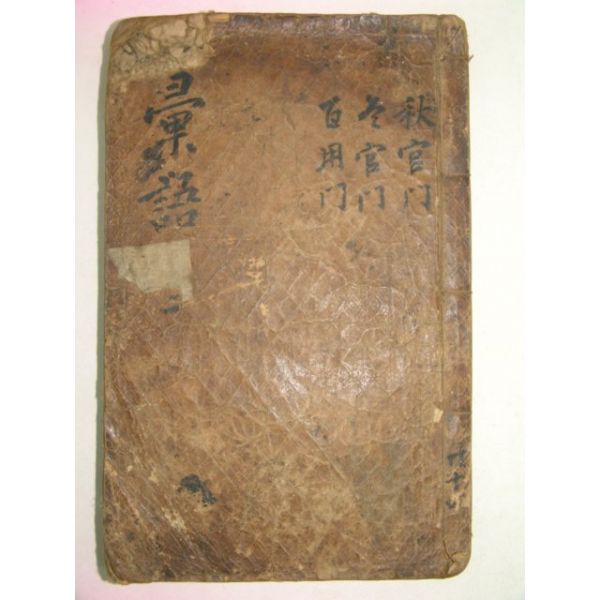 秋官门
冬官门
百用门
彙語
二